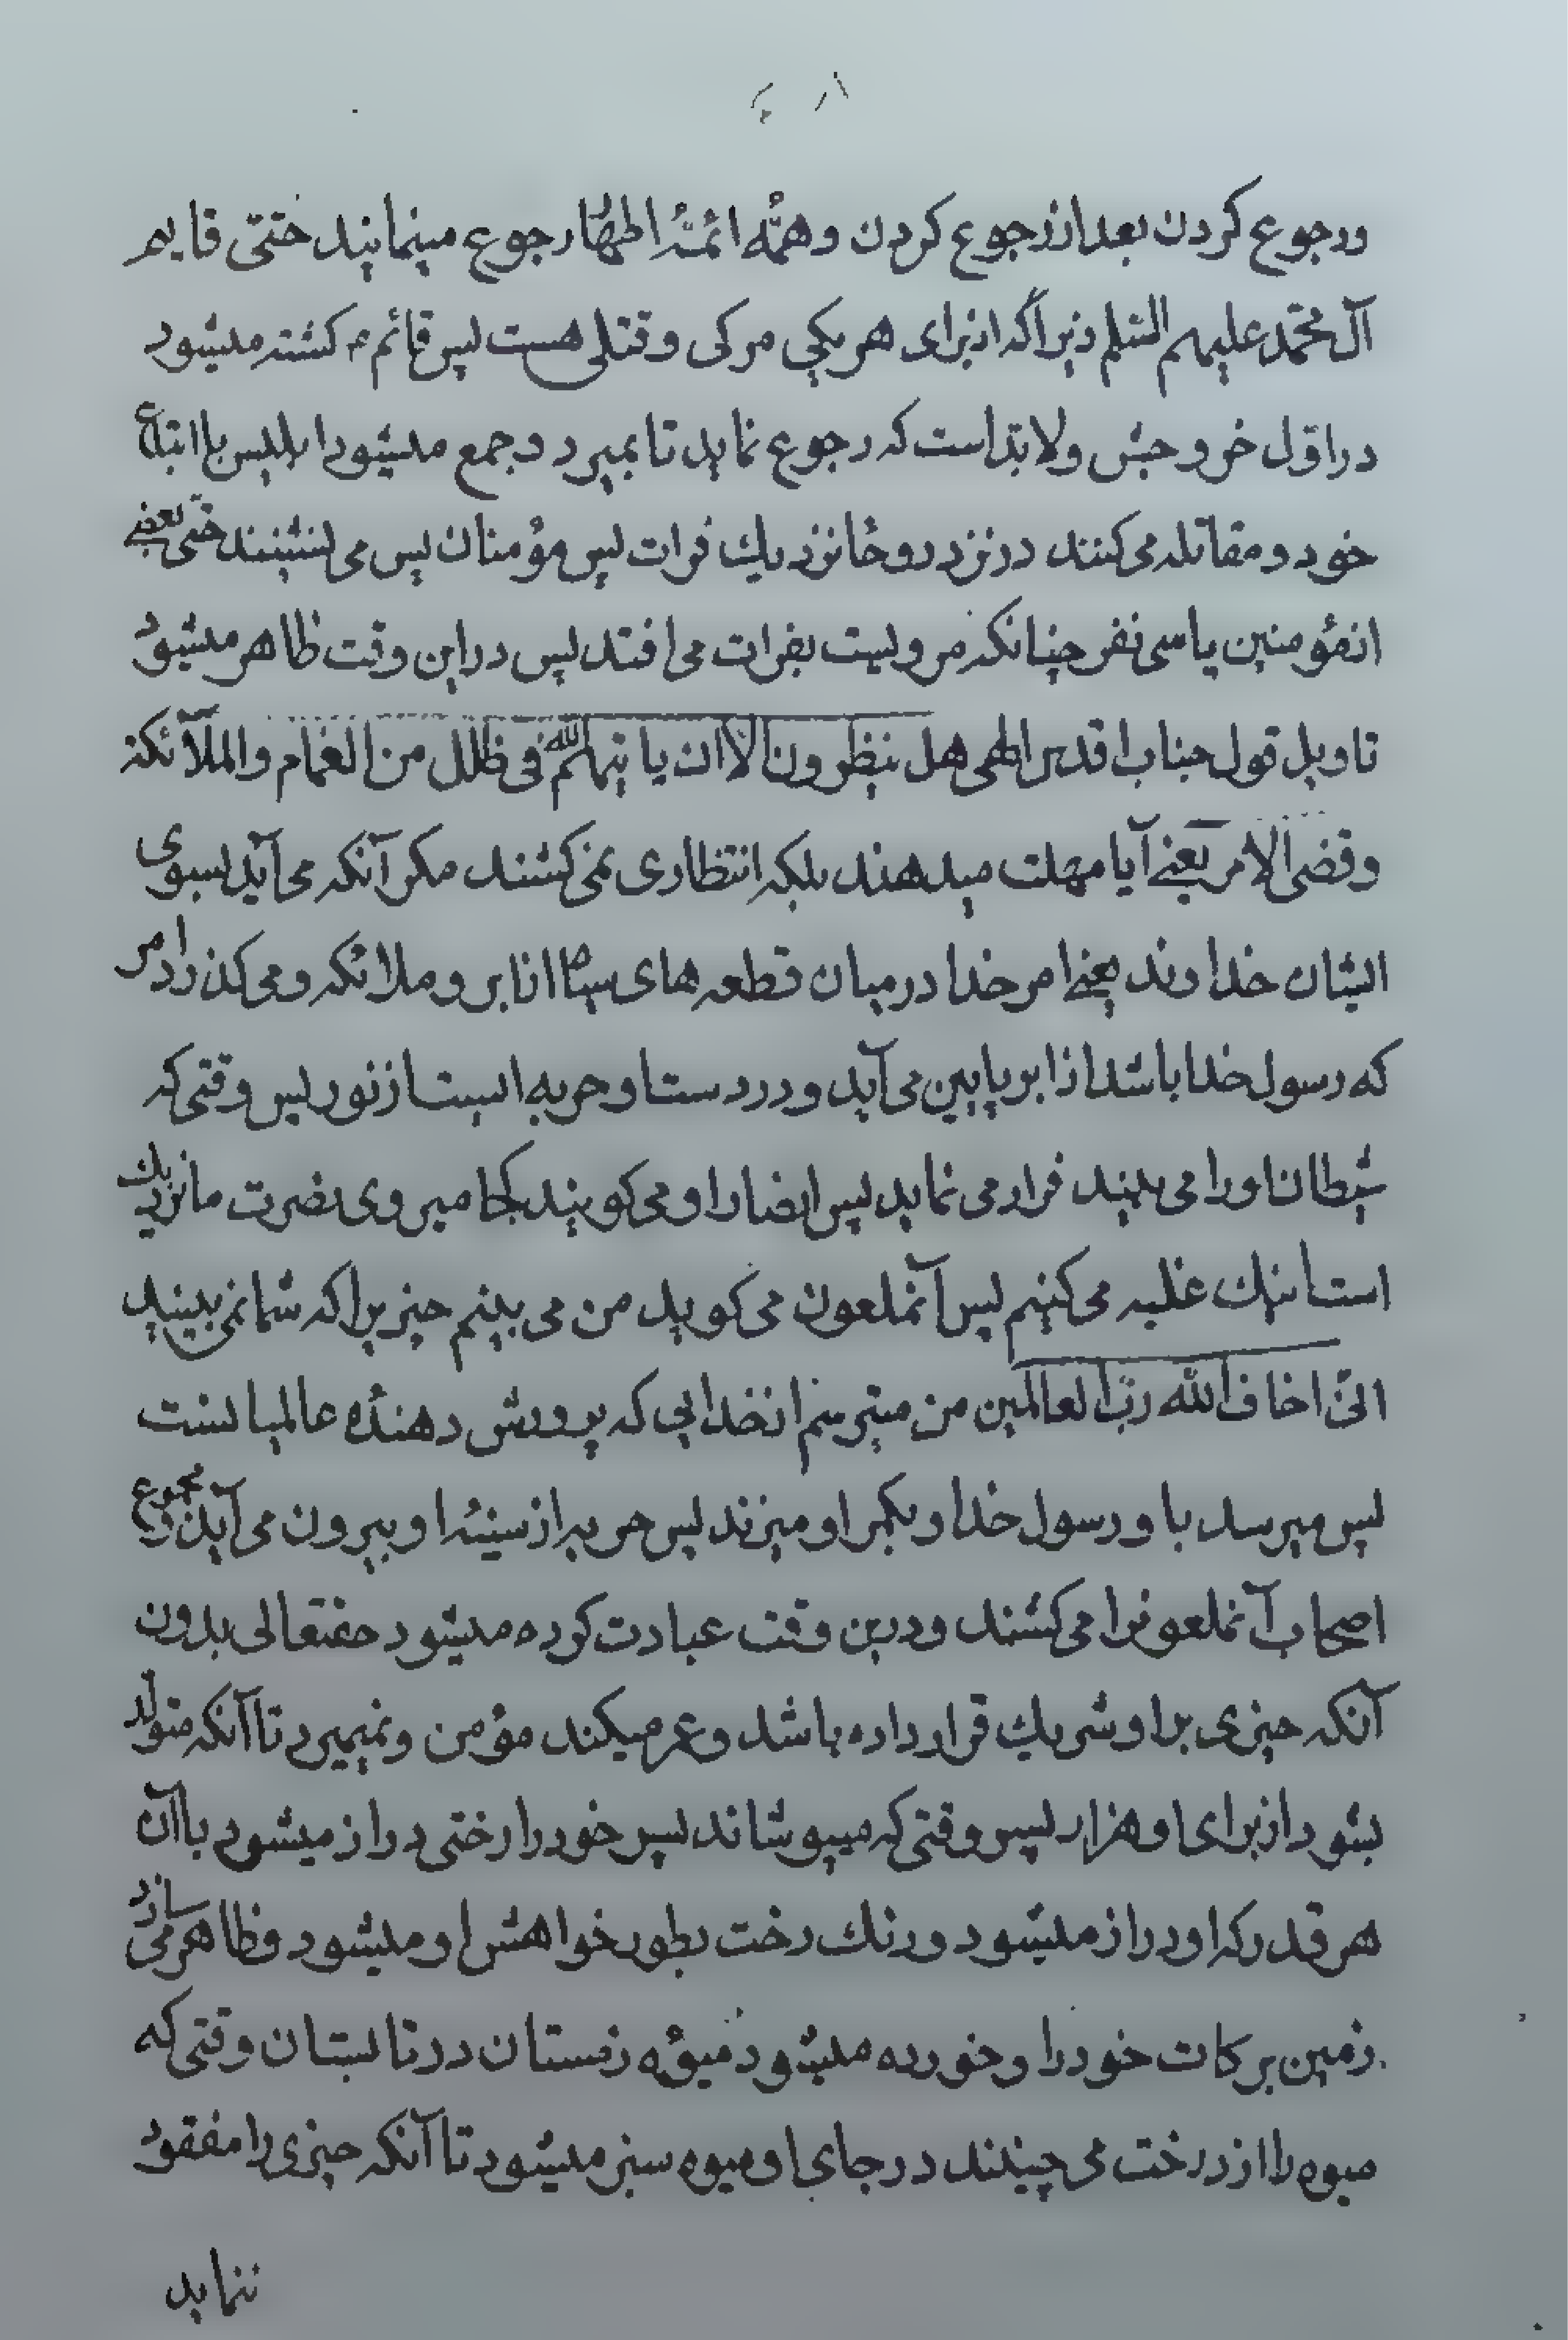 و رجوع کردن بعد از رجوع کردن و همهٔ ائمهٔ اطهار رجوع مینمایند حتّی قایم
آل محمّد علیهم السّلم زیرا که از برای هر یکی مرکی و قتلی هست پس قائم ع کشته میشود
در اوّل خروجش و لابدّ است که رجوع نماید تا بمیرد و جمع میشود ابلیس با اتباع
خود و مقاتله می کنند در نزد روحا نزدیك فرات پس مؤمنان پس می نشینند حتی بعضی
از مؤمنین یا سی نفر چنانکه مرویست بفرات می افتند پس در این وقت ظاهر میشود
تاویل قول جناب اقدس الهی هل ینظرون الا ان یاتیهم الله فی ظلل من الغمام والملآئکة
وقضی الامر یعنی آیا مهلت میدهند بلکه انتظاری نمی کشند مکر آنکه می آید بسوی
ایشان خداوند یعنی امر خدا در میان قطعه های سیاه از ابر و ملائکه و می کذراد امر
که رسول خدا باشد از ابر پایین می آید و در دست او حربه ایست از نور پس وقتی که
شیطان او را می بیند فرار می نماید پس انصار او می کویند کجا میروی نصرت ما نزدیك
است اینك غلبه می کنیم پس آنملعون می کوید من می بینم چیزیرا که شما نمی بینید
انّی اخاف الله ربّ العالمین من میترسم از خدایی که پرورش دهندهٔ عالمیانست
پس میرسد باو رسول خدا و بکمر او میزند پس حربه از سینهٔ او بیرون می آید و مجموع
اصحاب آنملعونرا می کشند و درین وقت عبادت کرده میشود حقتعالی بدون
آنکه چیزی برا او شریك قرار داده باشد و عمر میکند مؤمن و نمیمیرد تا آنکه متولد
بشود از برای او هزار پسر وقتی که میپوشاند پسر خود را رختی دراز میشود با آن
هر قدر که او دراز میشود و رنك رخت بطور خواهش او میشود و ظاهر می سازد
زمین برکات خود را و خورده میشود میوۀ زمستان در تابستان وقتی که
میوه را از درخت می چینند در جای او میوه سبز میشود تا آنکه چیزی را مفقود
ننماید